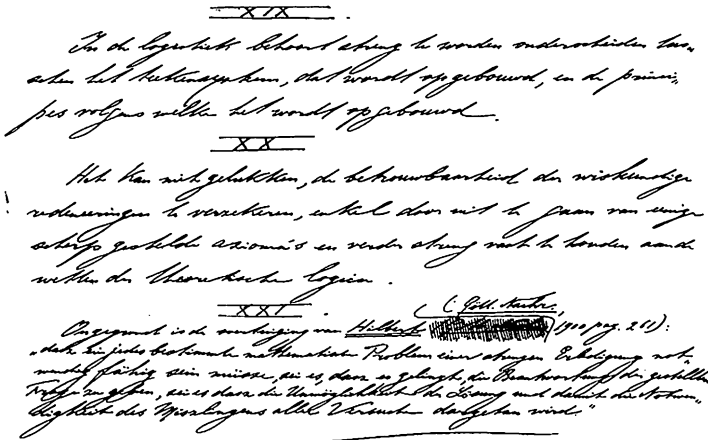 XIX.
In de logistiek behoort streng te worden onderscheiden tus„
schen het teekensysteem, dat wordt opgebouwd, en de princi„
pes volgens welken het wordt opgebouwd.
XX
Het kan niet gelukken, de betrouwbaarheid der wiskundige
redeneeringen te verzekeren, enkel door uit te gaan van eenige
scherp gestelde axioma's en verder streng vast te houden aan de
wetten der theoretische logica.
XXI.
(: Gött. Nachr.,
Ongegrond is de overtuiging van Hilbert 1900 pag. 261):
„dasz ein jedes bestimmte mathematische Problem einer strengen Erledigung not„
wendig fähig sein müsse, sei es, dasz es gelingt, die Beantwortung der gestellten
Frage zu geben, sei es dasz die Unmöglichkeit der Lösung und damit die Notwen„
digkeit des Misslingens aller Versuche dargetan wird."